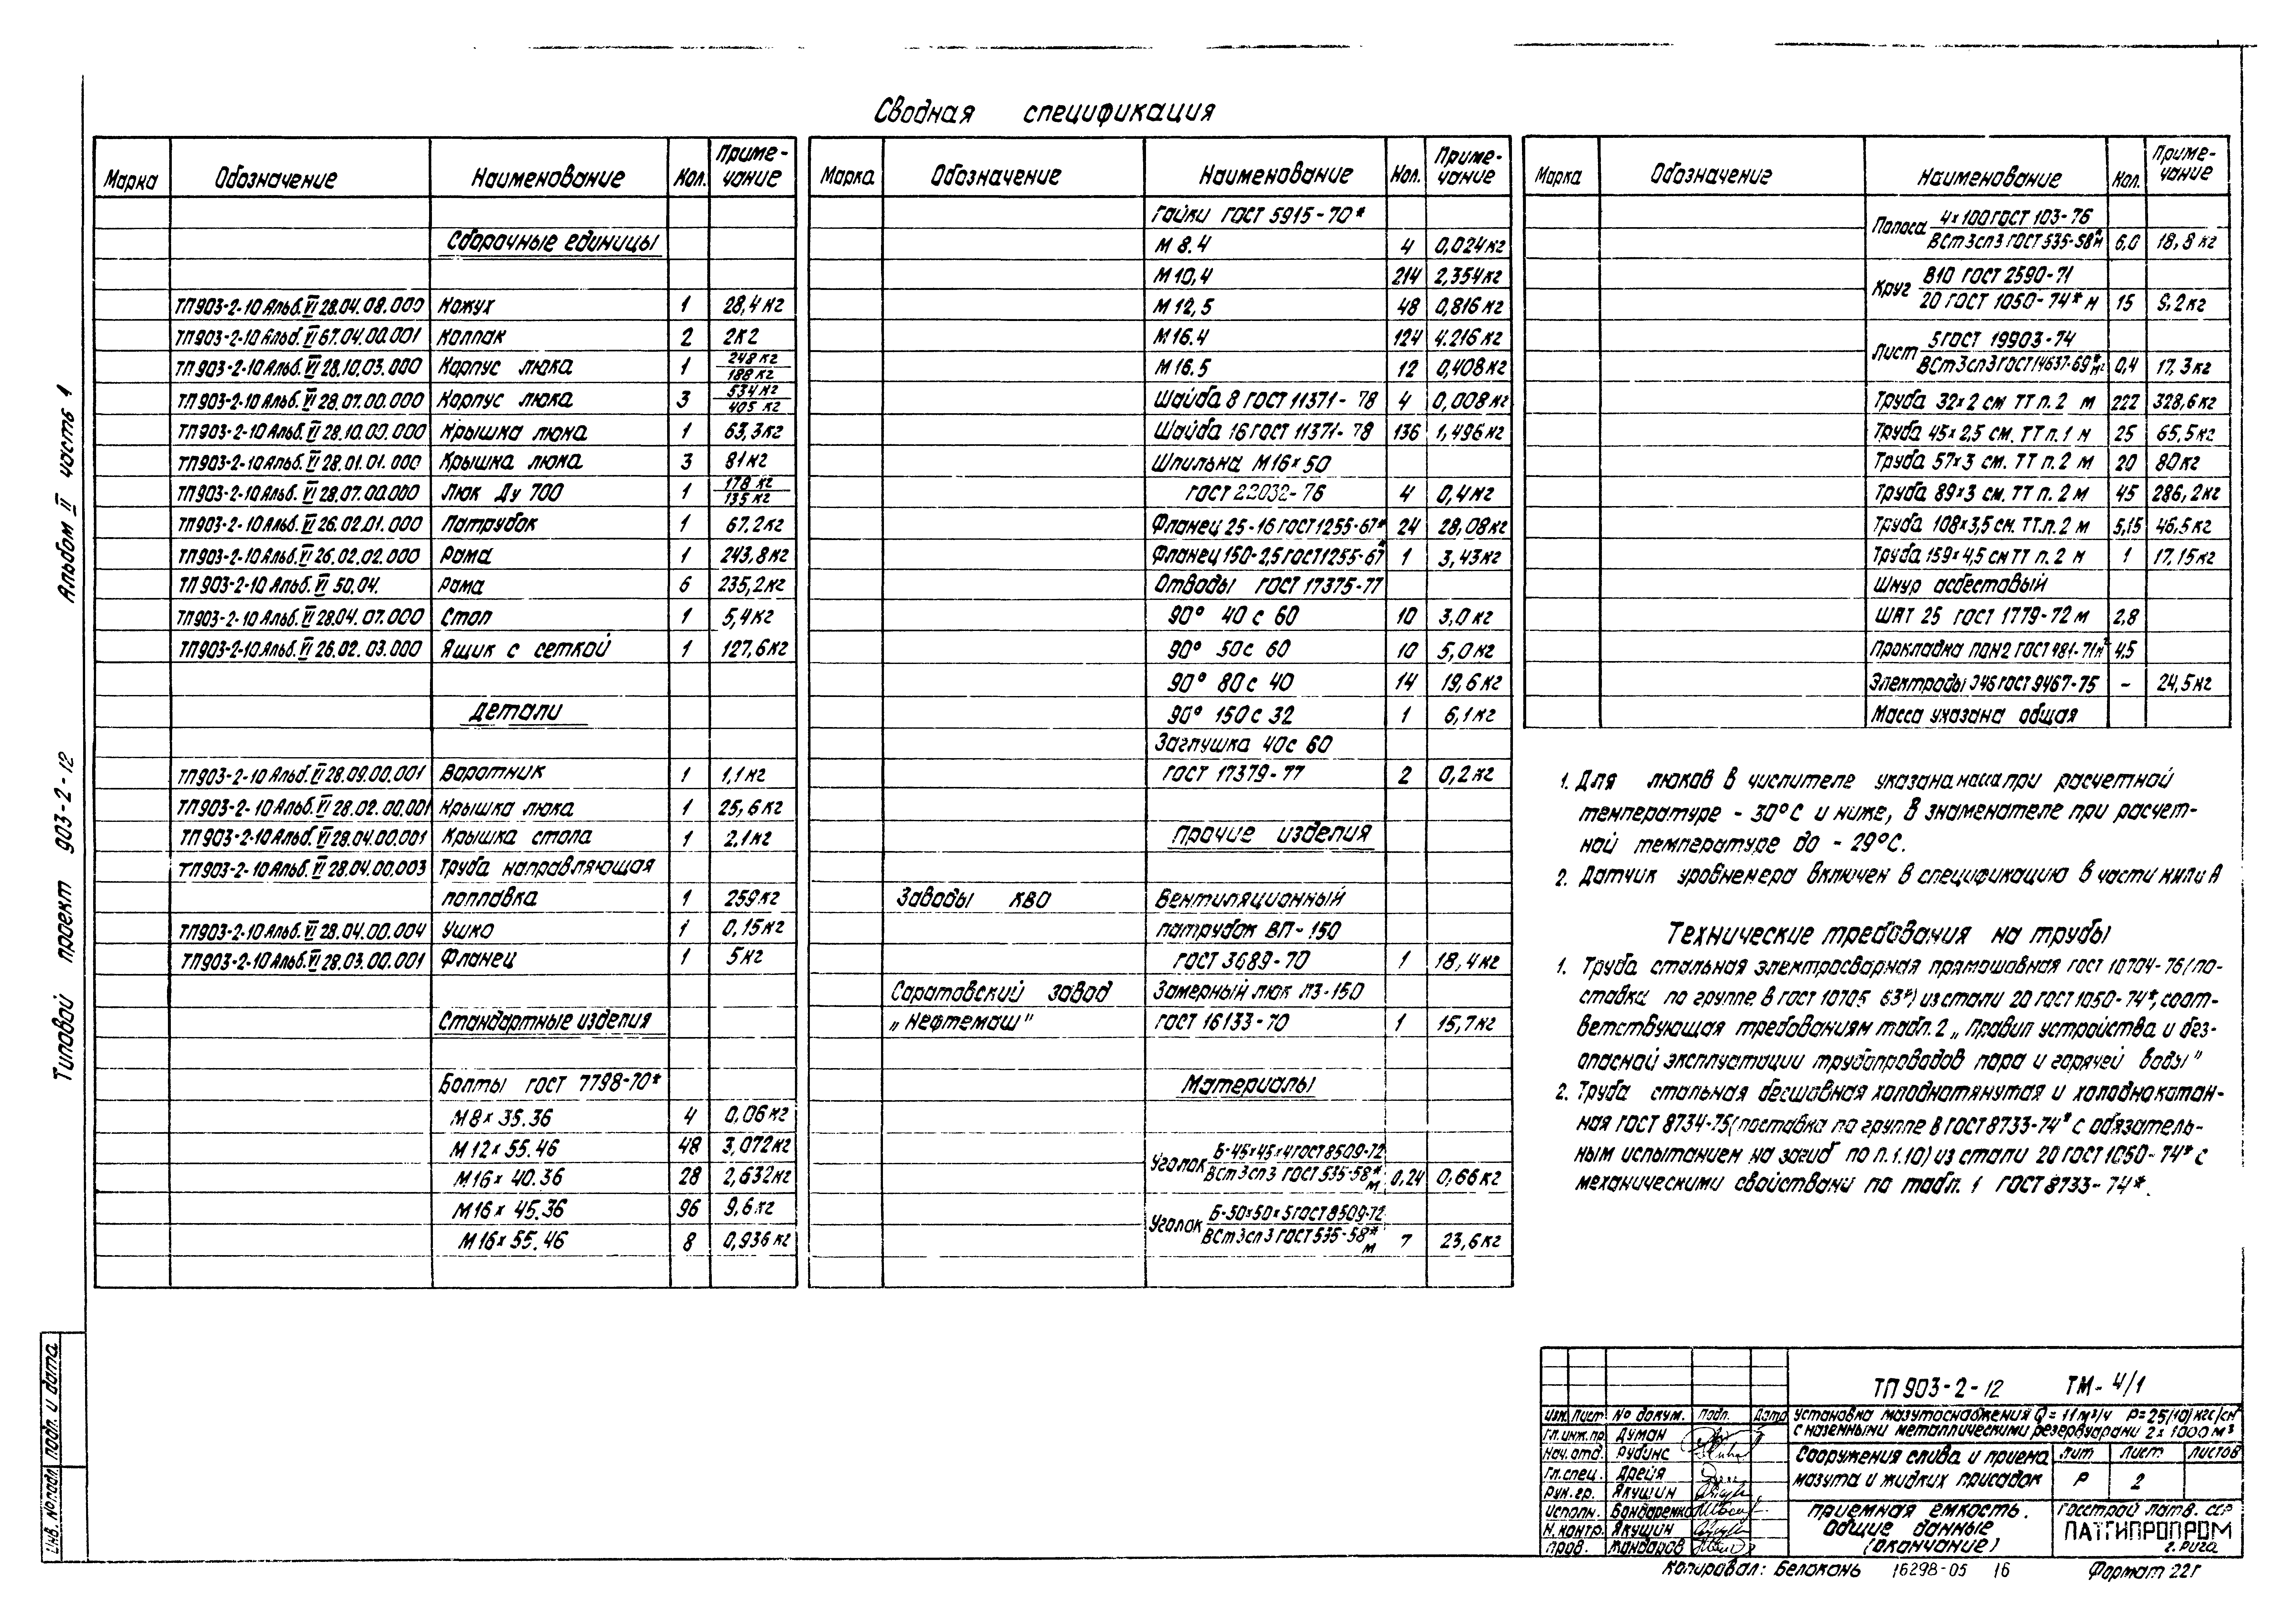 Сводная спецификация
Марка Обозначение Наименование Кол. Приме-чание
Сборочные единицы
ТП903-2-10 Альб. VI 28.04.08.000 Кожух 1 28,4 кг
ТП903-2-10 Альб. VI 67.04.00.001 Колпак 2 2 кг
ТП903-2-10 Альб. VI 28.10.03.000 Корпус люка 1 248 кг / 188 кг
ТП903-2-10 Альб. VI 28.07.00.000 Корпус люка 3 534 кг / 405 кг
ТП903-2-10 Альб. VI 28.10.00.000 Крышка люка 1 63,3 кг
ТП903-2-10 Альб. VI 28.01.01.000 Крышка люка 3 81 кг
ТП903-2-10 Альб. VI 28.07.00.000 Люк Ду 700 1 178 кг / 135 кг
ТП903-2-10 Альб. VI 26.02.01.000 Патрубок 1 67,2 кг
ТП903-2-10 Альб. VI 26.02.02.000 Рама 1 243,8 кг
ТП 903-2-10 Альб. VI 50.04. Рама 6 235,2 кг
ТП903-2-10 Альб. VI 28.04.07.000 Стол 1 5,4 кг
ТП903-2-10 Альб. VI 26.02.03.000 Ящик с сеткой 1 127,6 кг
Детали
ТП903-2-10 Альб. VI 28.09.00.001 Воротник 1 1,1 кг
ТП903-2-10 Альб. VI 28.02.00.001 Крышка люка 1 25,6 кг
ТП903-2-10 Альб. VI 28.04.00.001 Крышка стола 1 2,1 кг
ТП903-2-10 Альб. VI 28.04.00.003 Труба направляющая
поплавка 1 259 кг
ТП903-2-10 Альб. VI 28.04.00.004 Ушко 1 0,15 кг
ТП903-2-10 Альб. VI 28.03.00.001 Фланец 1 5 кг
Стандартные изделия
Болты ГОСТ 7798-70*
М8х35.36 4 0,06 кг
М12х55.46 48 3,072 кг
М16х40.36 28 2,632 кг
М16х45.36 96 9,6 кг
М16х55.46 8 0,936 кг
Марка Обозначение Наименование Кол. Приме-чание
Гайки ГОСТ 5915-70*
М 8.4 4 0,024 кг
М 10,4 214 2,354 кг
М 12,5 48 0,816 кг
М 16.4 124 4.216 кг
М 16.5 12 0,408 кг
Шайба 8 ГОСТ 11371-78 4 0,008 кг
Шайба 16 ГОСТ 11371-78 136 1,496 кг
Шпилька М16х50
ГОСТ 22032-76 4 0,4 кг
Фланец 25-16 ГОСТ 1255-67* 24 28,08 кг
Фланец 150-2,5 ГОСТ 1255-67* 1 3,43 кг
Отводы ГОСТ 17375-77
90° 40 с 60 10 3,0 кг
90° 50 с 60 10 5,0 кг
90° 80 с 40 14 19,6 кг
90° 150 с 32 1 6,1 кг
Заглушка 40с 60
ГОСТ 17379-77 2 0,2 кг
Прочие изделия
Заводы КВО Вентиляционный
патрубок ВП-150
ГОСТ 3689-70 1 18,4 кг
Саратовский завод Замерный люк ЛЗ-150
„Нефтемаш" ГОСТ 16133-70 1 15,7 кг
Материалы
Уголок Б-45х45х4 ГОСТ 8509-72 / ВСт3сп3 ГОСТ 535-58* м 0,24 0,66 кг
Уголок Б-50х50х5 ГОСТ 8509-72 / ВСт3сп3 ГОСТ 535-58* м 7 23,6 кг
Марка Обозначение Наименование Кол. Приме-чание
Полоса 4х100 ГОСТ 103-76 / ВСт3сп3 ГОСТ 535-58* м 6,0 18,8 кг
Круг В10 ГОСТ 2590-71 / 20 ГОСТ 1050-74* м 15 9,2 кг
Лист 5 ГОСТ 19903-74 / ВСт3сп3 ГОСТ 14637-69* м² 0,4 17,3 кг
Труба 32х2 см ТТ п.2 м 222 328,6 кг
Труба 45х2,5 см. ТТ п.1 м 25 65,5 кг
Труба 57х3 см. ТТ п.2 м 20 80 кг
Труба 89х3 см. ТТ п.2 м 45 286,2 кг
Труба 108х3,5 см. ТТ.п.2 м 5,15 46,5 кг
Труба 159х4,5 см ТТ п.2 м 1 17,15 кг
Шнур асбестовый
ШАТ 25 ГОСТ 1779-72 м 2,8
Прокладка ПОН2 ГОСТ 481-71 м² 4,5
Электроды Э46 ГОСТ 9467-75 - 24,5 кг
Масса указана общая
1. Для люков в числителе указана масса при расчетной
температуре - 30°С и ниже, в знаменателе при расчет-
ной температуре до - 29°С.
2. Датчик уровнемера включен в спецификацию в части КИП и А
Технические требования на трубы
1. Труба стальная электросварная прямошовная ГОСТ 10704-76 (по-
ставка по группе В ГОСТ 10705 63*) из стали 20 ГОСТ 1050-74*, соот-
ветствующая требованиям табл. 2 „Правил устройства и без-
опасной эксплуатации трубопроводов пара и горячей воды"
2. Труба стальная бесшовная холоднотянутая и холоднокатан-
ная ГОСТ 8734-75 (поставка по группе В ГОСТ 8733-74* с обязатель-
ным испытанием на загиб по п. 1.10) из стали 20 ГОСТ 1050-74* с
механическими свойствами по табл. 1 ГОСТ 8733-74*.
Типовой проект 903-2-12 Альбом II часть 1
Инв. № подл. Подп. и дата
ТП 903-2-12 ТМ-4/1
Изм. Лист № докум. Подп. Дата
Гл. инж. пр. Думан
Нач. отд. Рубинс
Гл. спец. Дрейя
Рук. гр. Якушин
Исполн. Бондаренко
Н. контр. Якушин
Пров.
Установка мазутоснабжения Q = 11 м³/ч Р = 25(10) кгс/см²
с наземными металлическими резервуарами 2х1000 м³
Сооружения слива и приема
мазута и жидких присадок
Лит Лист Листов
Р 2
Приемная емкость.
Общие данные
(окончание)
Госстрой Латв. ССР
ЛАТГИПРОПРОМ
г. Рига
Копировал: Белоконь 16298-05 16 Формат 22г